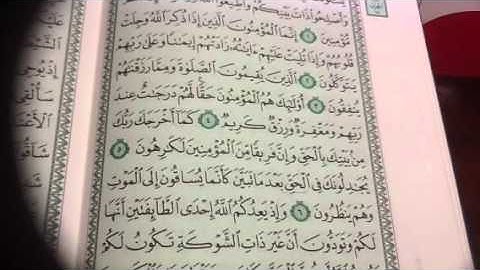 وَأَصْلِحُوا۟ ذَاتَ بَيْنِكُمْ وَأَطِيعُوا۟
مُّؤْمِنِينَ ١ إِنَّمَا ٱلْمُؤْمِنُونَ ٱلَّذِينَ إِذَا ذُكِرَ ٱللَّهُ وَجِلَتْ
قُلُوبُهُمْ وَإِذَا تُلِيَتْ عَلَيْهِمْ ءَايَـٰتُهُۥ زَادَتْهُمْ إِيمَـٰنًا وَعَلَىٰ رَبِّهِمْ
يَتَوَكَّلُونَ ٢ ٱلَّذِينَ يُقِيمُونَ ٱلصَّلَوٰةَ وَمِمَّا رَزَقْنَـٰهُمْ
يُنفِقُونَ ٣ أُو۟لَـٰٓئِكَ هُمُ ٱلْمُؤْمِنُونَ حَقًّا لَّهُمْ دَرَجَـٰتٌ عِندَ
رَبِّهِمْ وَمَغْفِرَةٌ وَرِزْقٌ كَرِيمٌ ٤ كَمَآ أَخْرَجَكَ رَبُّكَ
مِنۢ بَيْتِكَ بِٱلْحَقِّ وَإِنَّ فَرِيقًا مِّنَ ٱلْمُؤْمِنِينَ لَكَـٰرِهُونَ ٥
يُجَـٰدِلُونَكَ فِى ٱلْحَقِّ بَعْدَ مَا تَبَيَّنَ كَأَنَّمَا يُسَاقُونَ إِلَى ٱلْمَوْتِ
وَهُمْ يَنظُرُونَ ٦ وَإِذْ يَعِدُكُمُ ٱللَّهُ إِحْدَى ٱلطَّآئِفَتَيْنِ أَنَّهَا
لَكُمْ وَتَوَدُّونَ أَنَّ غَيْرَ ذَاتِ ٱلشَّوْكَةِ تَكُونُ لَكُمْ
إِذْ يُوحِى
سَأُلْقِى
شَآقُّوا۟